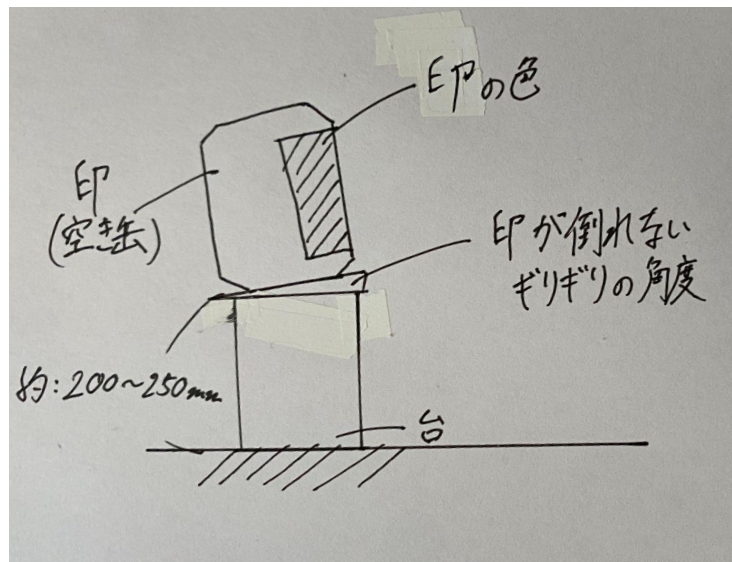 印の色
印
(空き缶)
印が倒れない
ギリギリの角度
約:200~250mm
台